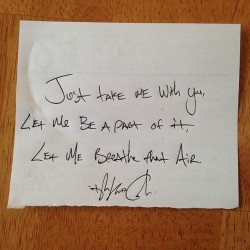 Just take me with you,
Let me Be a part of it,
Let me Breathe that Air